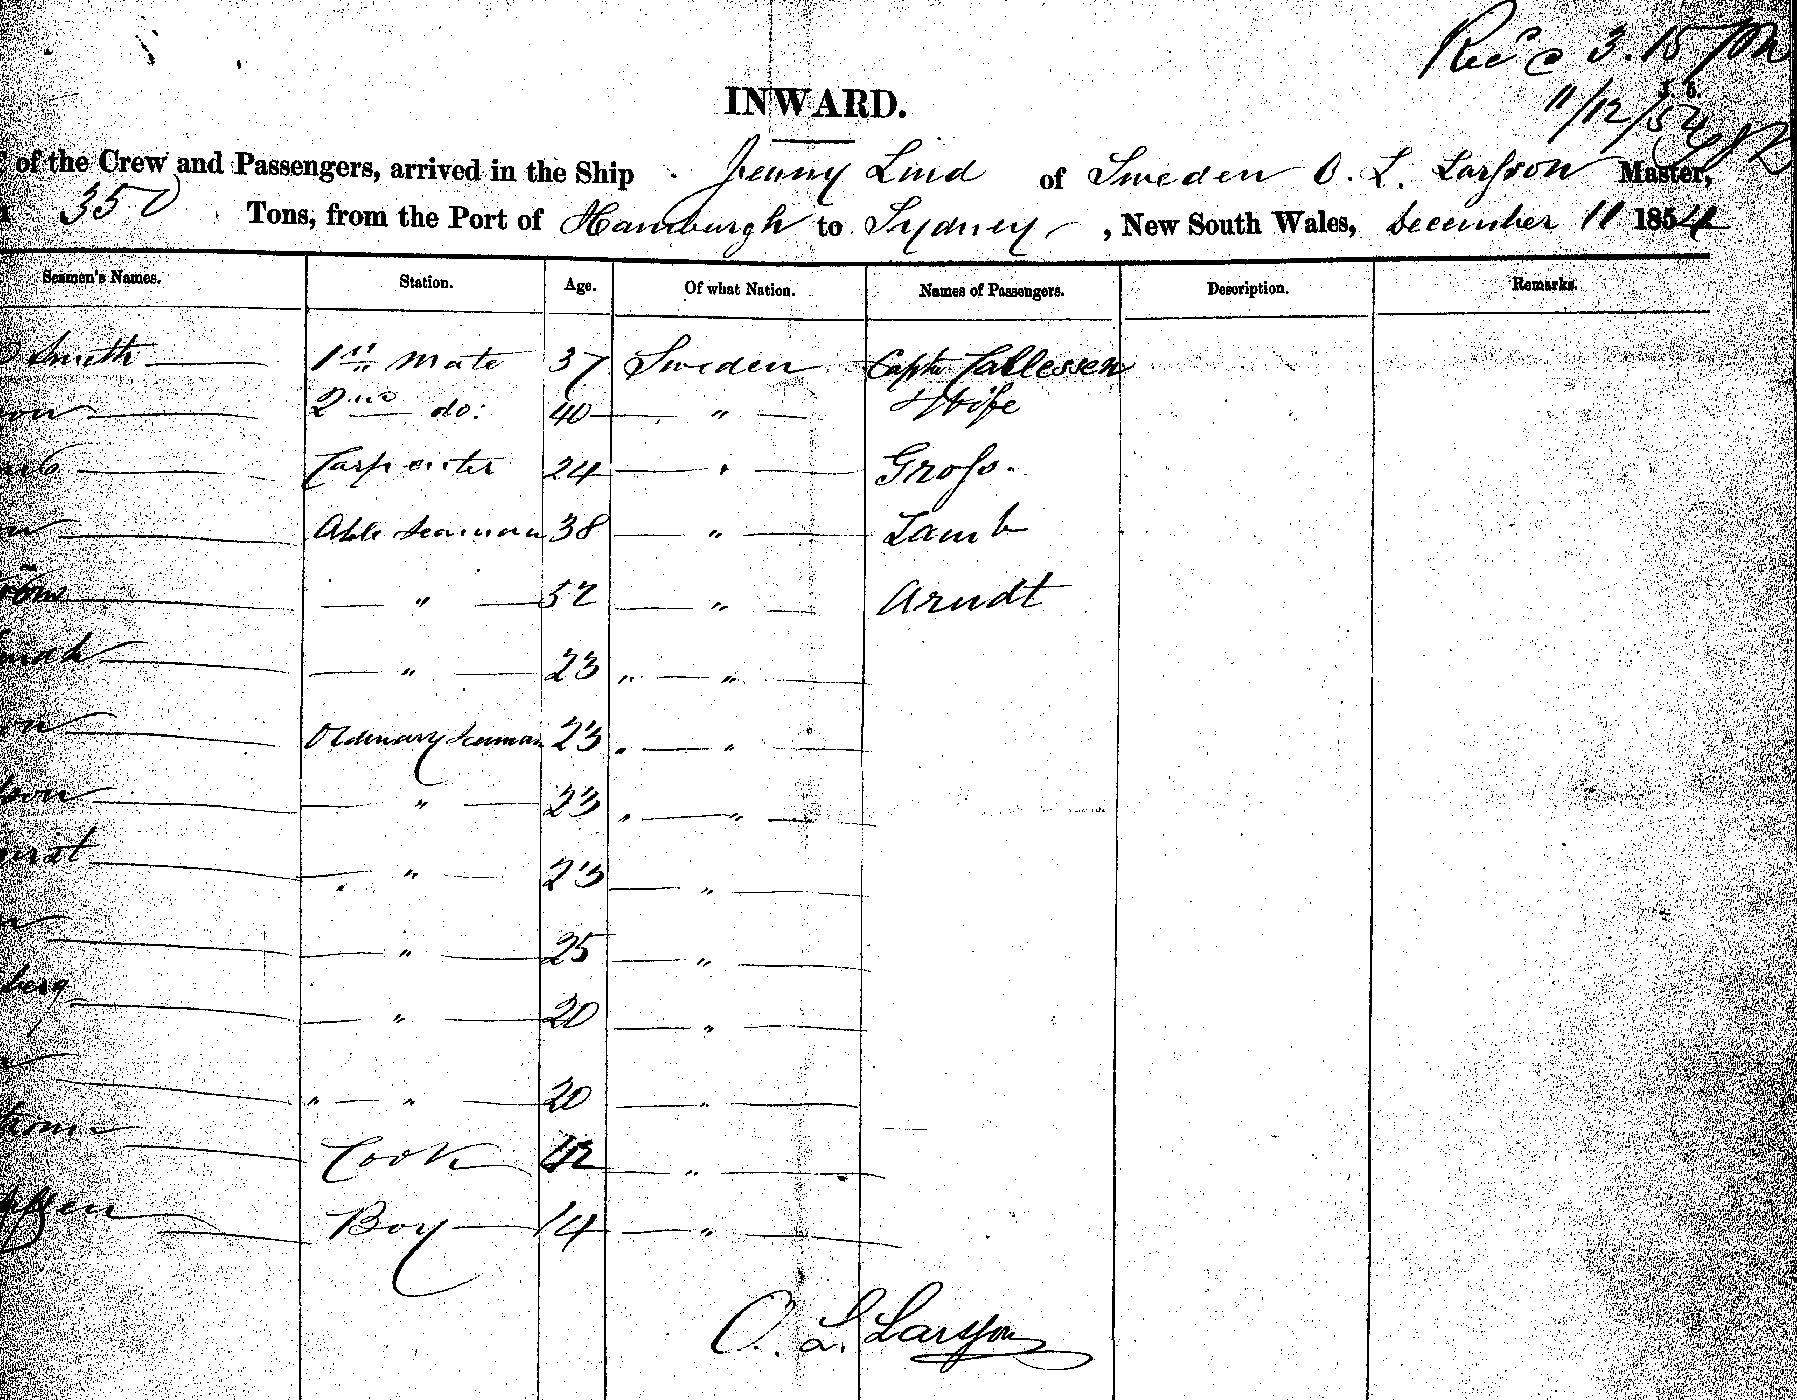 Rec'd @ 3.15 pm
11/12/54
INWARD.
of the Crew and Passengers, arrived in the Ship Jenny Lind of Sweden O. L. Larsson Master,
350 Tons, from the Port of Hamburgh to Sydney, New South Wales, December 11 1854
Seamen's Names. Station. Age. Of what Nation. Names of Passengers. Description. Remarks.
Smith 1st Mate 37 Sweden Captn
2nd do: 40 " Wife
Carpenter 24 " Gross.
Able Seaman 38 " Lamb
" 52 " Arndt
" 23 " "
Ordinary Seaman 23 " "
" 23 " "
" 23 "
" 25 "
berg " 20 "
" " 20 "
Cook 42 "
Boy 14 "
O. L. Larsson